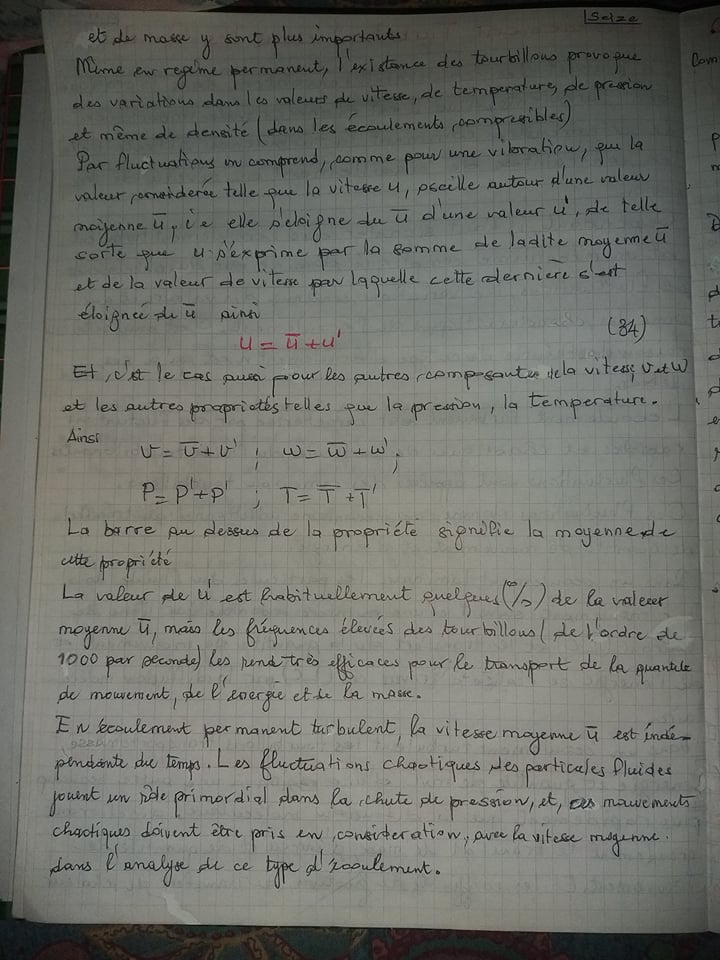 Seize
et de masse y sont plus importants
Même en regime permanent, l'existance des tourbillons provoque
des variations dans les valeurs de vitesse, de temperature, de pression
et même de densité (dans les écoulements compressibles)
Par fluctuations on comprend, comme pour une vibration, que la
valeur considerée telle que la vitesse u, oscille autour d'une valeur
moyenne u̅, i.e elle s'éloigne du u̅ d'une valeur u', de telle
sorte que u s'exprime par la somme de ladite moyenne u̅
et de la valeur de vitesse par laquelle cette dernière s'est
éloignée de u̅ ainsi
u = u̅ + u' (34)
Et, c'est le cas aussi pour les autres composantes de la vitesse, v et w
et les autres propriétés telles que la pression, la temperature.
Ainsi
v = v̅ + v' ; w = w̅ + w' ;
P = P' + P' ; T = T̅ + T'
La barre au dessus de la propriété signifie la moyenne de
cette propriété
La valeur de u' est habituellement quelques (%) de la valeur
moyenne u̅, mais les fréquences élevées des tourbillons (de l'ordre de
1000 par seconde) les rend très efficaces pour le transport de la quantité
de mouvement, de l'énergie et de la masse.
En écoulement permanent turbulent, la vitesse moyenne u̅ est indé-
pendante du temps. Les fluctuations chaotiques des particules fluides
jouent un rôle primordial dans la chute de pression, et, ces mouvements
chaotiques doivent être pris en consideration, avec la vitesse moyenne.
dans l'analyse de ce type d'écoulement.